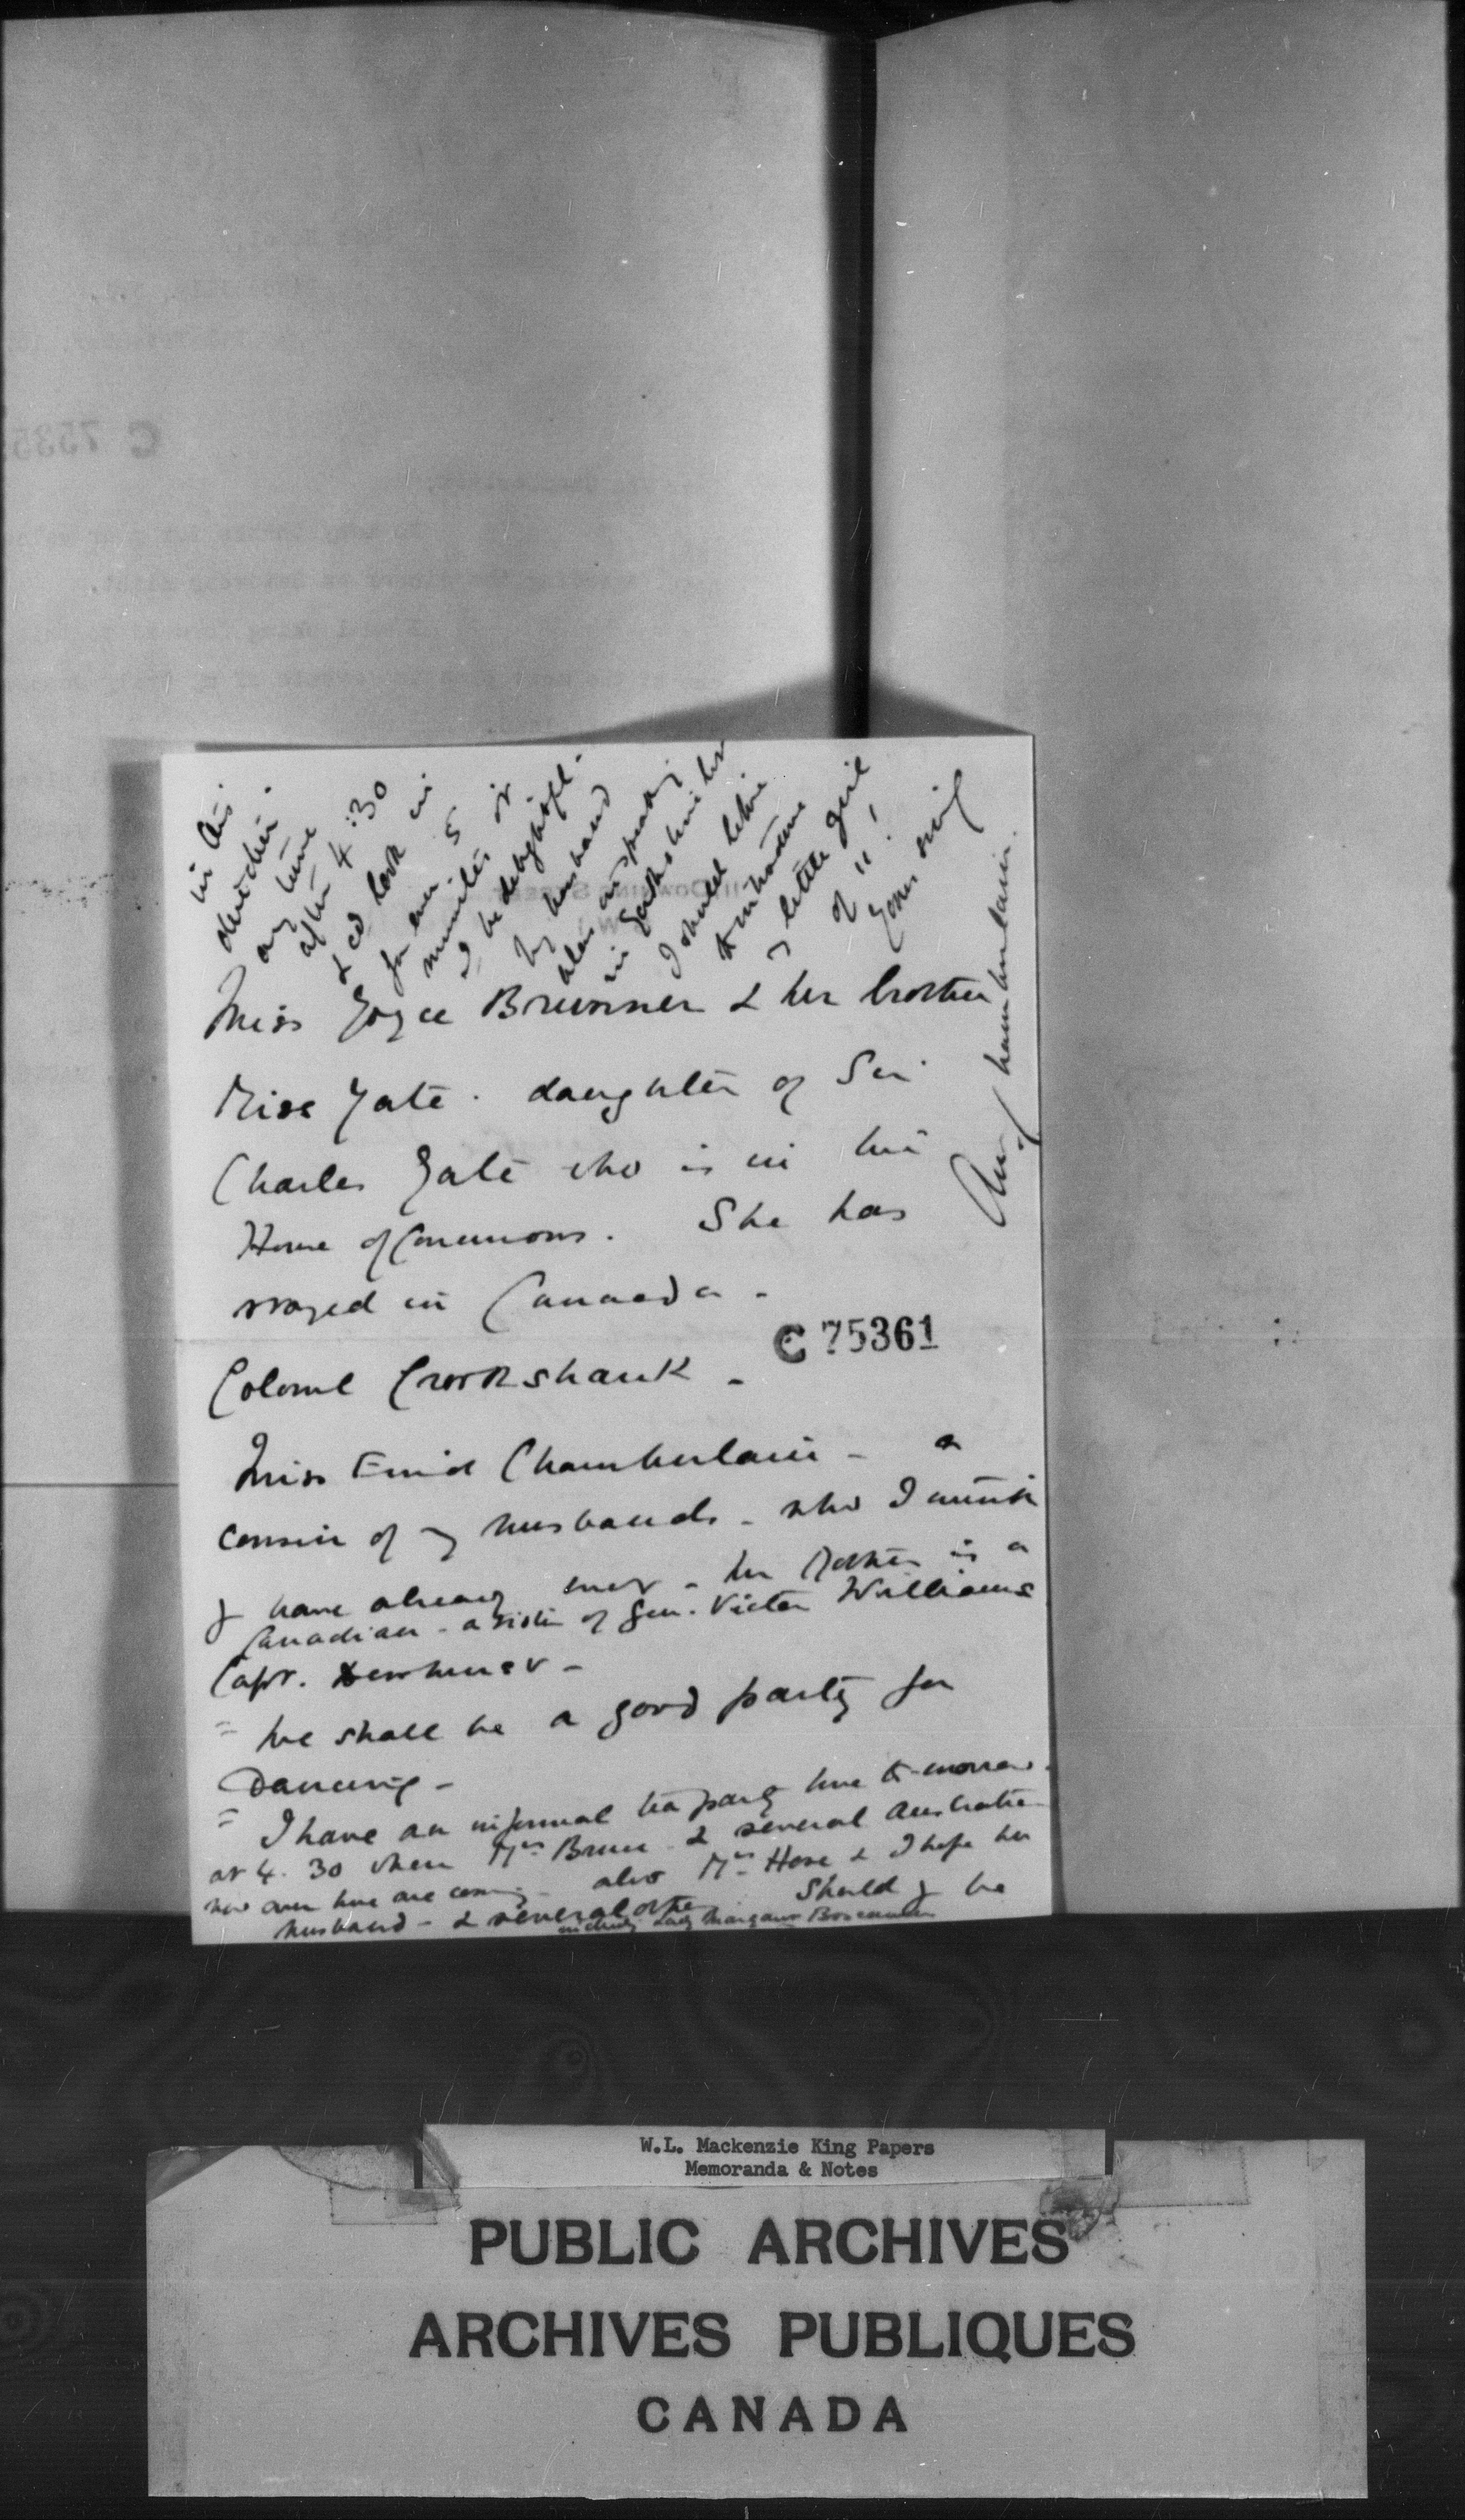 Miss Joyce Brunner & her brother
Miss Yate. daughter of Sir
Charles Yate who is in the
House of Commons. She has
stayed in Canada -
C 75361
Colonel Crookshank -
Miss Enid Chamberlain - a
cousin of my husbands - who I think
y have already met - her Mother is a
Canadian - a sister of Gen. Victor Williams
Capt.
= We shall be a good party for
Dancing -
= I have an informal tea party here to-morrow.
at 4.30 when Mrs Bruce & several Australians
now over here are coming - also Mrs Hose & I hope her
husband - & several others Should y be
including Lady Margaret Boscawen
in this
direction.
any time
after 4:30
& cd look in
for even 5 or
minutes
I be delighted -
My husband
also is speaking
in
I should like
to introduce
my little girl
of 11!
Yours sincly
Ivy Chamberlain.
Downing Street
W.L. Mackenzie King Papers
Memoranda & Notes
PUBLIC ARCHIVES
ARCHIVES PUBLIQUES
CANADA